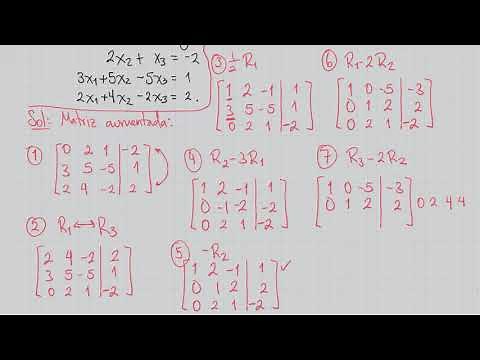 2x₂ + x₃ = -2
3x₁+5x₂ -5x₃ = 1
2x₁+4x₂ -2x₃ = 2.
Sol: Matriz aumentada:
① [0 2 1 | -2]
[3 5 -5 | 1]
[2 4 -2 | 2]
② R₁ ⟷ R₃
[2 4 -2 | 2]
[3 5 -5 | 1]
[0 2 1 | -2]
③ ½ R₁
[1 2 -1 | 1]
[3 5 -5 | 1]
[0 2 1 | -2]
④ R₂ -3R₁
[1 2 -1 | 1]
[0 -1 -2 | -2]
[0 2 1 | -2]
⑤ -R₂
[1 2 -1 | 1] ✓
[0 1 2 | 2]
[0 2 1 | -2]
⑥ R₁-2R₂
[1 0 -5 | -3]
[0 1 2 | 2]
[0 2 1 | -2]
⑦ R₃ -2R₂
[1 0 -5 | -3]
[0 1 2 | 2] 0 2 4 4